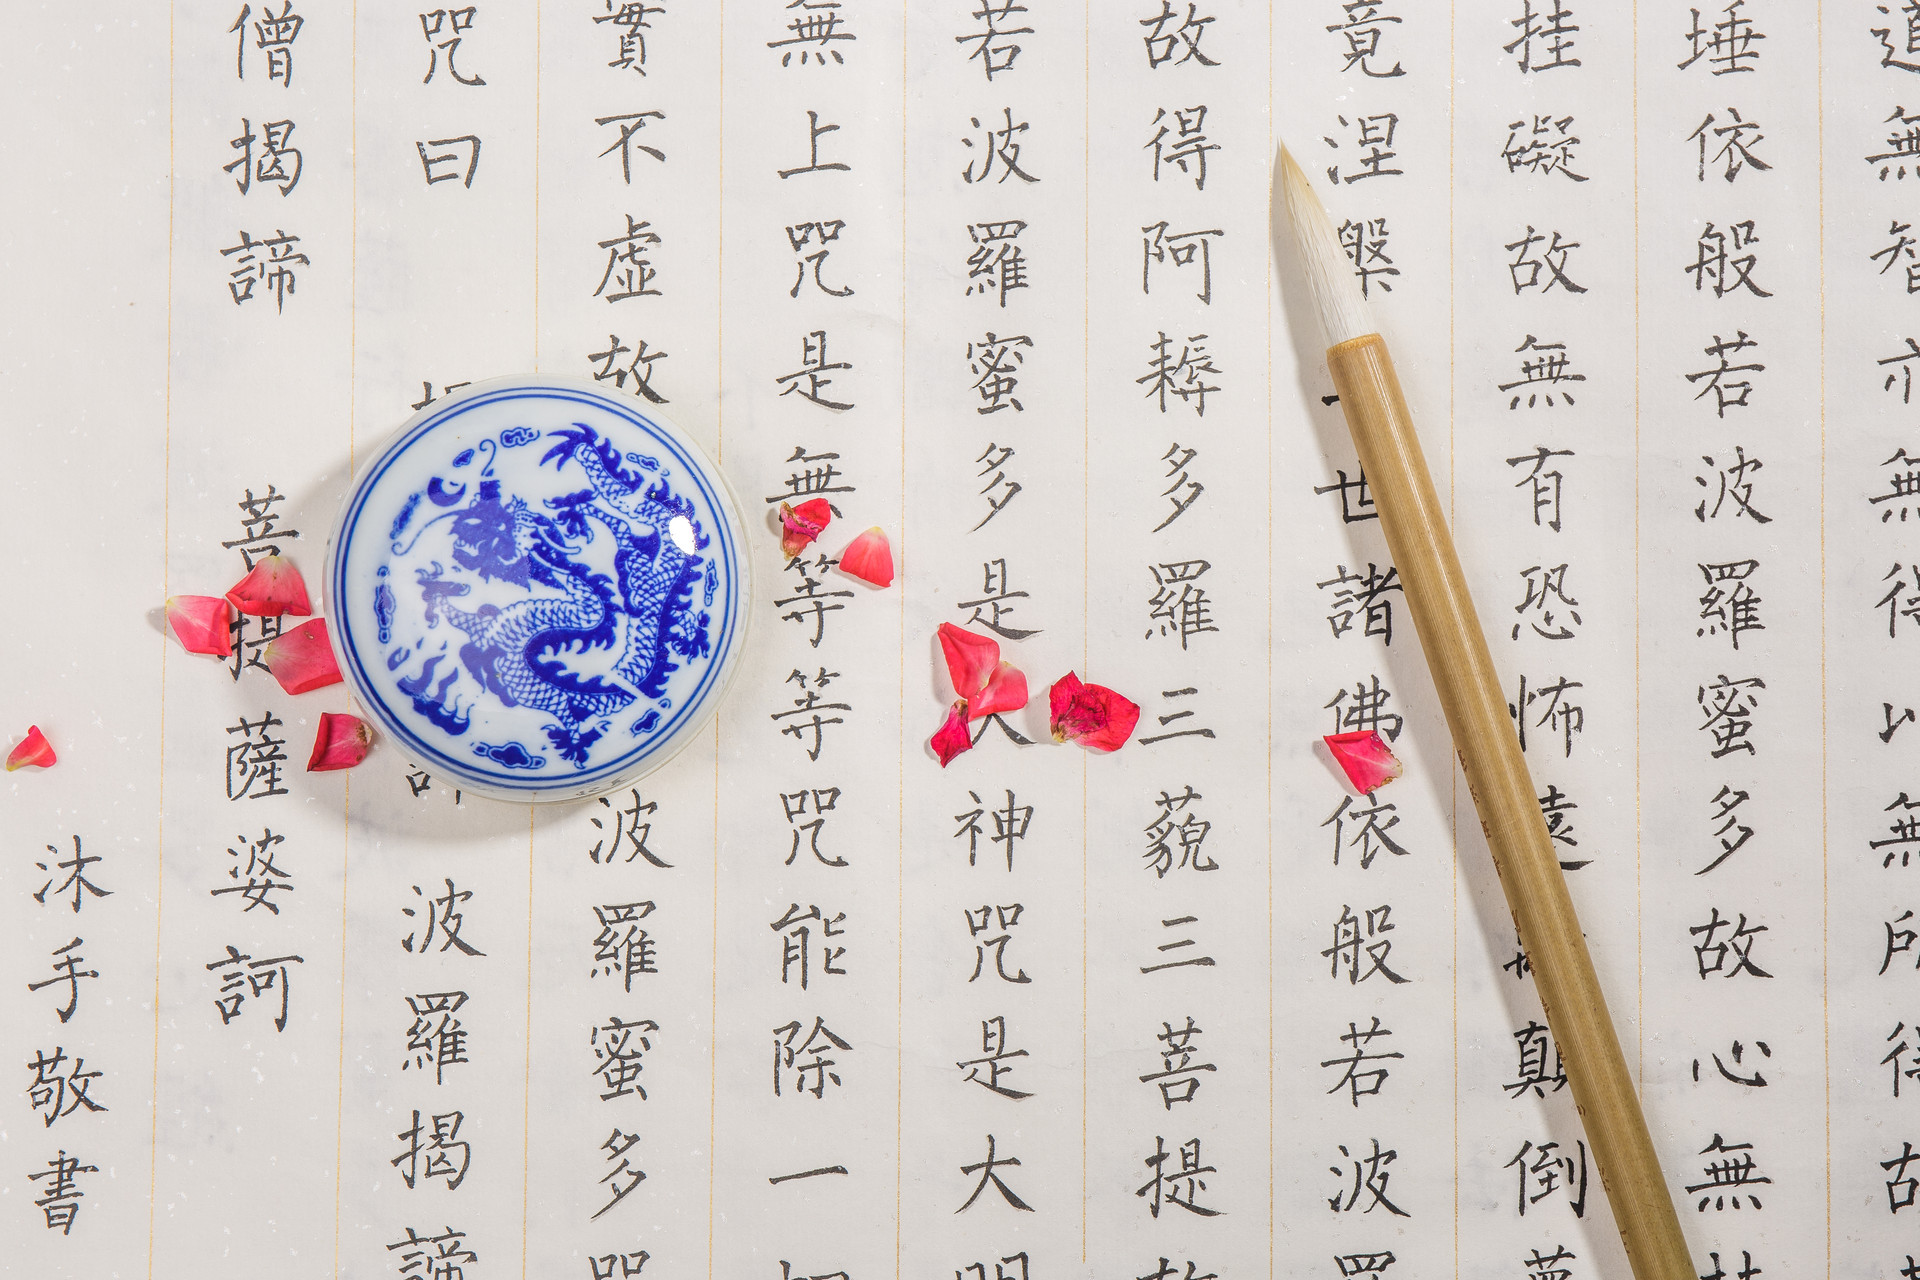 道無智亦無得以無所得故
埵依般若波羅蜜多故心無
挂礙故無有恐怖遠顛倒夢
竟涅槃世諸佛依般若波羅
故得阿耨多羅三藐三菩提故
若波羅蜜多是大神咒是大明
無上咒是無等等咒能除一切
實不虚故波羅蜜多咒
咒曰 波羅揭諦
僧揭諦 菩提薩婆訶
沐手敬書